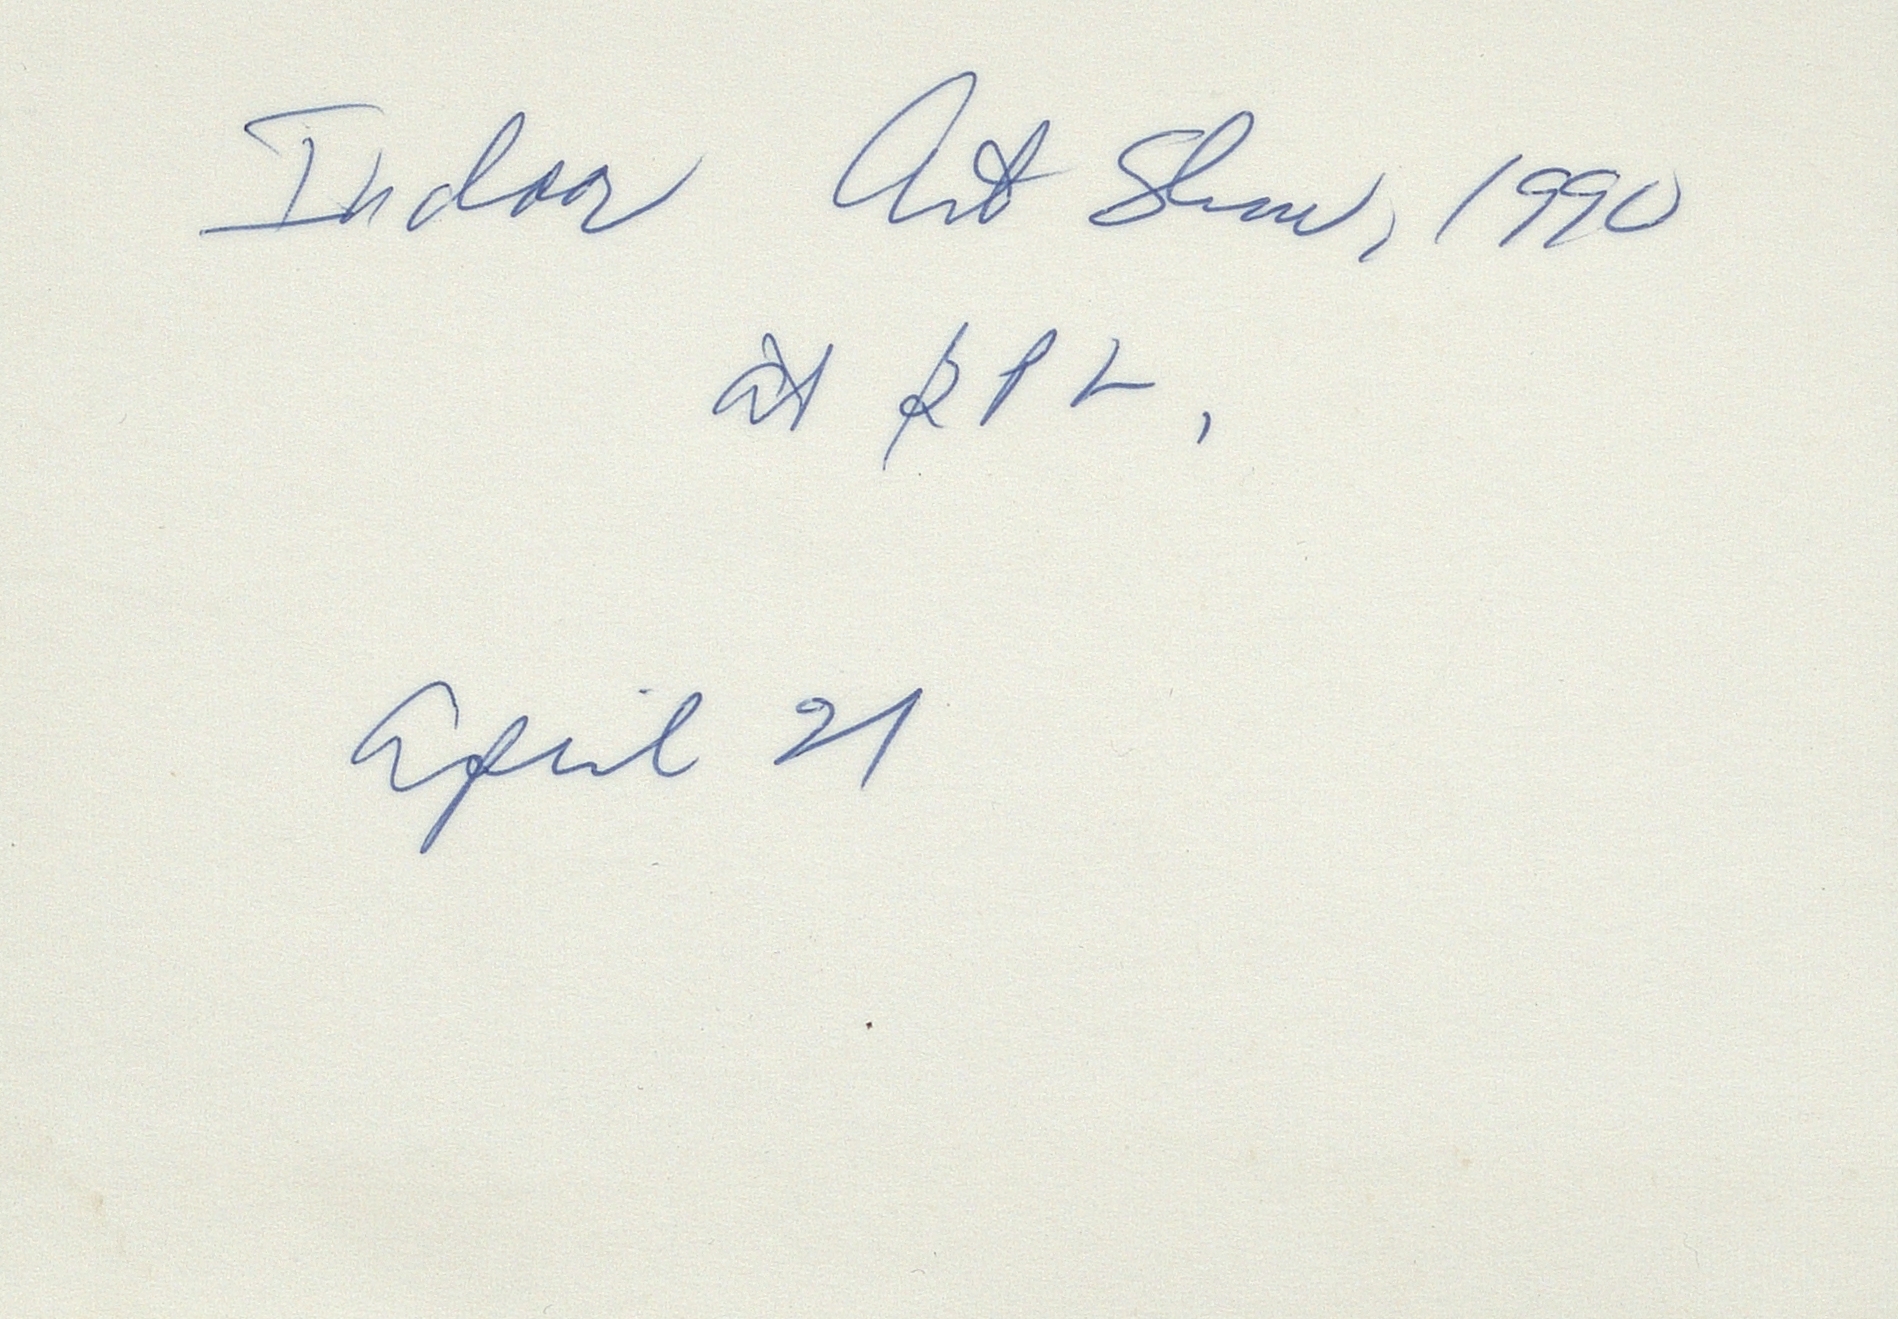 Indoor Art Show, 1990
at RPL,
April 21